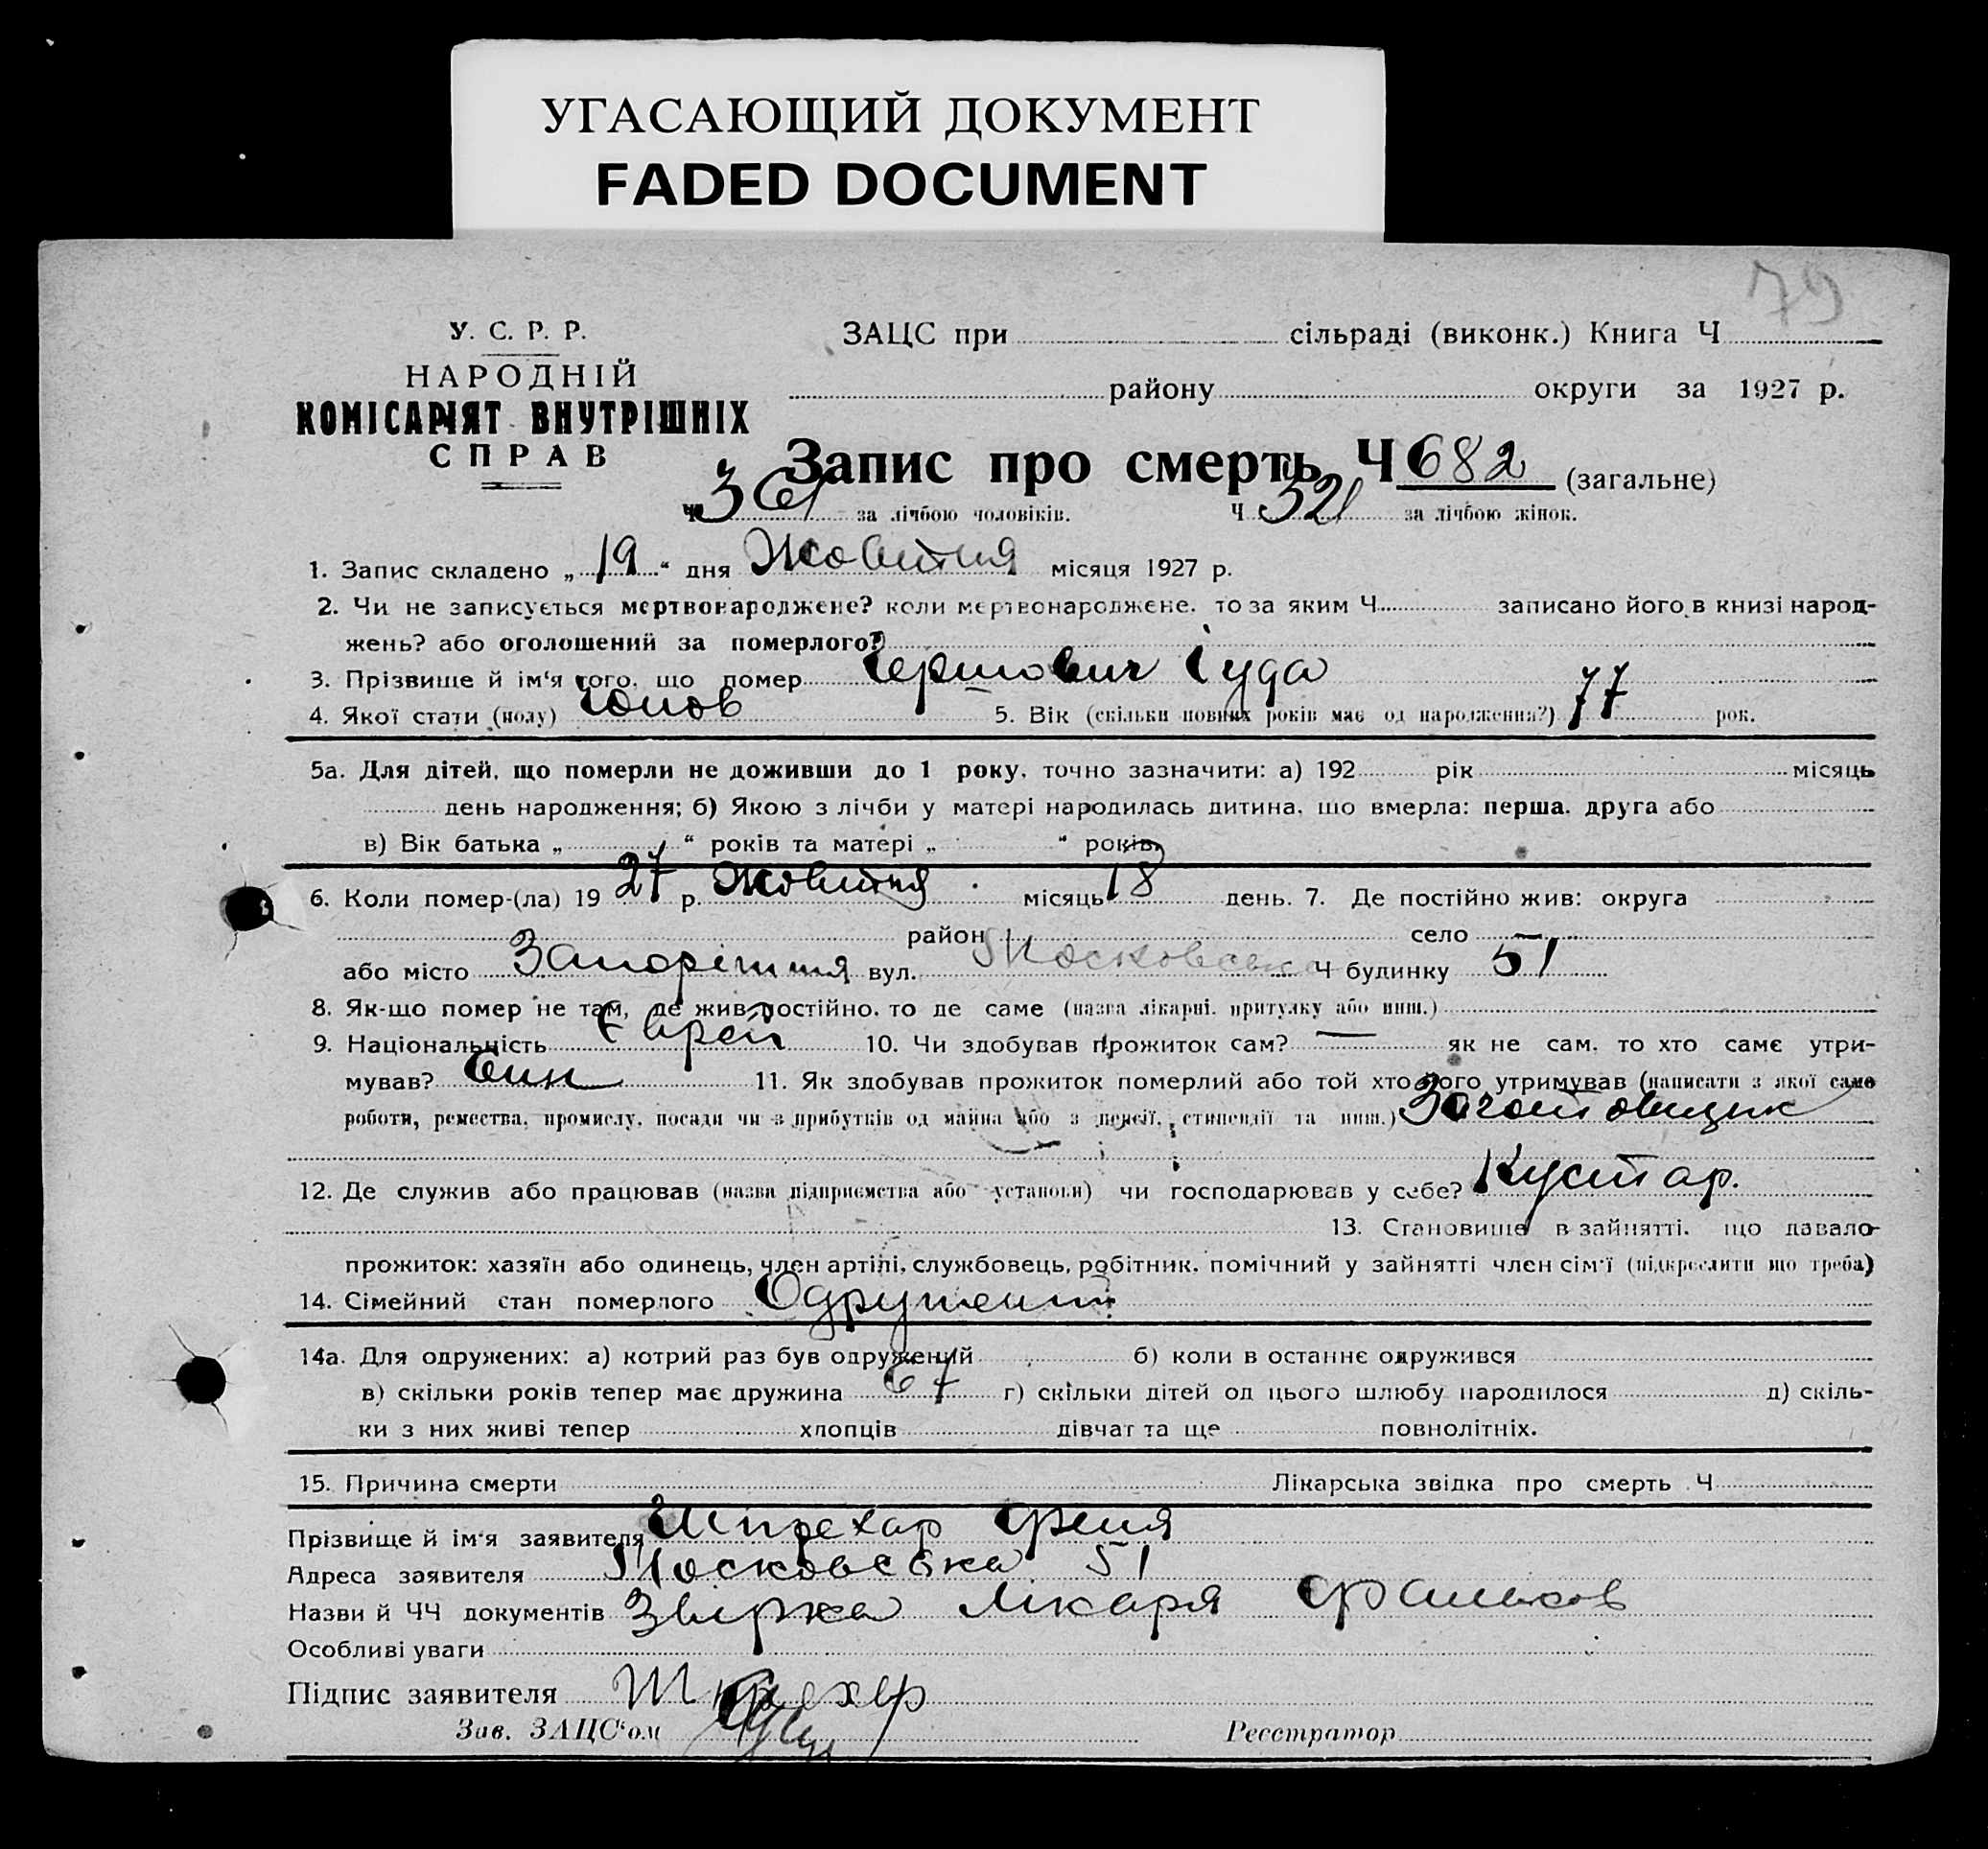 УГАСАЮЩИЙ ДОКУМЕНТ
FADED DOCUMENT
79
У. С. Р. Р.
НАРОДНІЙ
КОМІСАРІЯТ ВНУТРІШНІХ
СПРАВ
ЗАЦС при сільраді (виконк.) Книга Ч
району округи за 1927 р.
Запис про смерть Ч 682 (загальне)
Ч 361 за лічбою чоловіків. Ч 321 за лічбою жінок.
1. Запис складено „ 19 “ дня Жовтня місяця 1927 р.
2. Чи не записується мертвонароджене? коли мертвонароджене, то за яким Ч. записано його в книзі народ-
жень? або оголошений за померлого?
3. Прізвище й ім‘я того, що помер Гершович Іуда
4. Якої стати (полу) 5. Вік (скільки повних років має од народження?) 77 рок.
5а. Для дітей, що померли не доживши до 1 року, точно зазначити: а) 192 рік місяць
день народження; б) Якою з лічби у матері народилась дитина, що вмерла: перша, друга або
в) Вік батька „ “ років та матері „ “ років
6. Коли помер-(ла) 19 27 р. Жовтня місяць 18 день. 7. Де постійно жив: округа
район село —
або місто Запоріжжя вул. Московська Ч будинку 51
8. Як-що помер не там, де жив постійно, то де саме (назва лікарні, притулку або инш.)
9. Національність Єврей 10. Чи здобував прожиток сам? — як не сам, то хто саме утри-
мував? Син 11. Як здобував прожиток померлий або той хто його утримував (написати з якої саме
роботи, ремества, промислу, посади чи з прибутків од майна або з пенсії, стипендії та инш.) Заготовщик
12. Де служив або працював (назва підприємства або установи) чи господарював у себе? Кустар.
13. Становище в зайнятті, що давало
прожиток: хазяїн або одинець, член артілі, службовець, робітник, помічний у зайнятті член сім‘ї (підкреслити що треба)
14. Сімейний стан померлого Одружений
14а. Для одружених: а) котрий раз був одружений б) коли в останнє одружився
в) скільки років тепер має дружина 67 г) скільки дітей од цього шлюбу народилося д) скіль-
ки з них живі тепер хлопців дівчат та ще повнолітніх.
15. Причина смерти Лікарська звідка про смерть Ч.
Прізвище й ім‘я заявителя Шпрехар Феня
Адреса заявителя Московська 51
Назви й ЧЧ документів Звірка Лікаря
Особливі уваги
Підпис заявителя Шпрехер
Зав. ЗАЦС‘ом Реєстратор